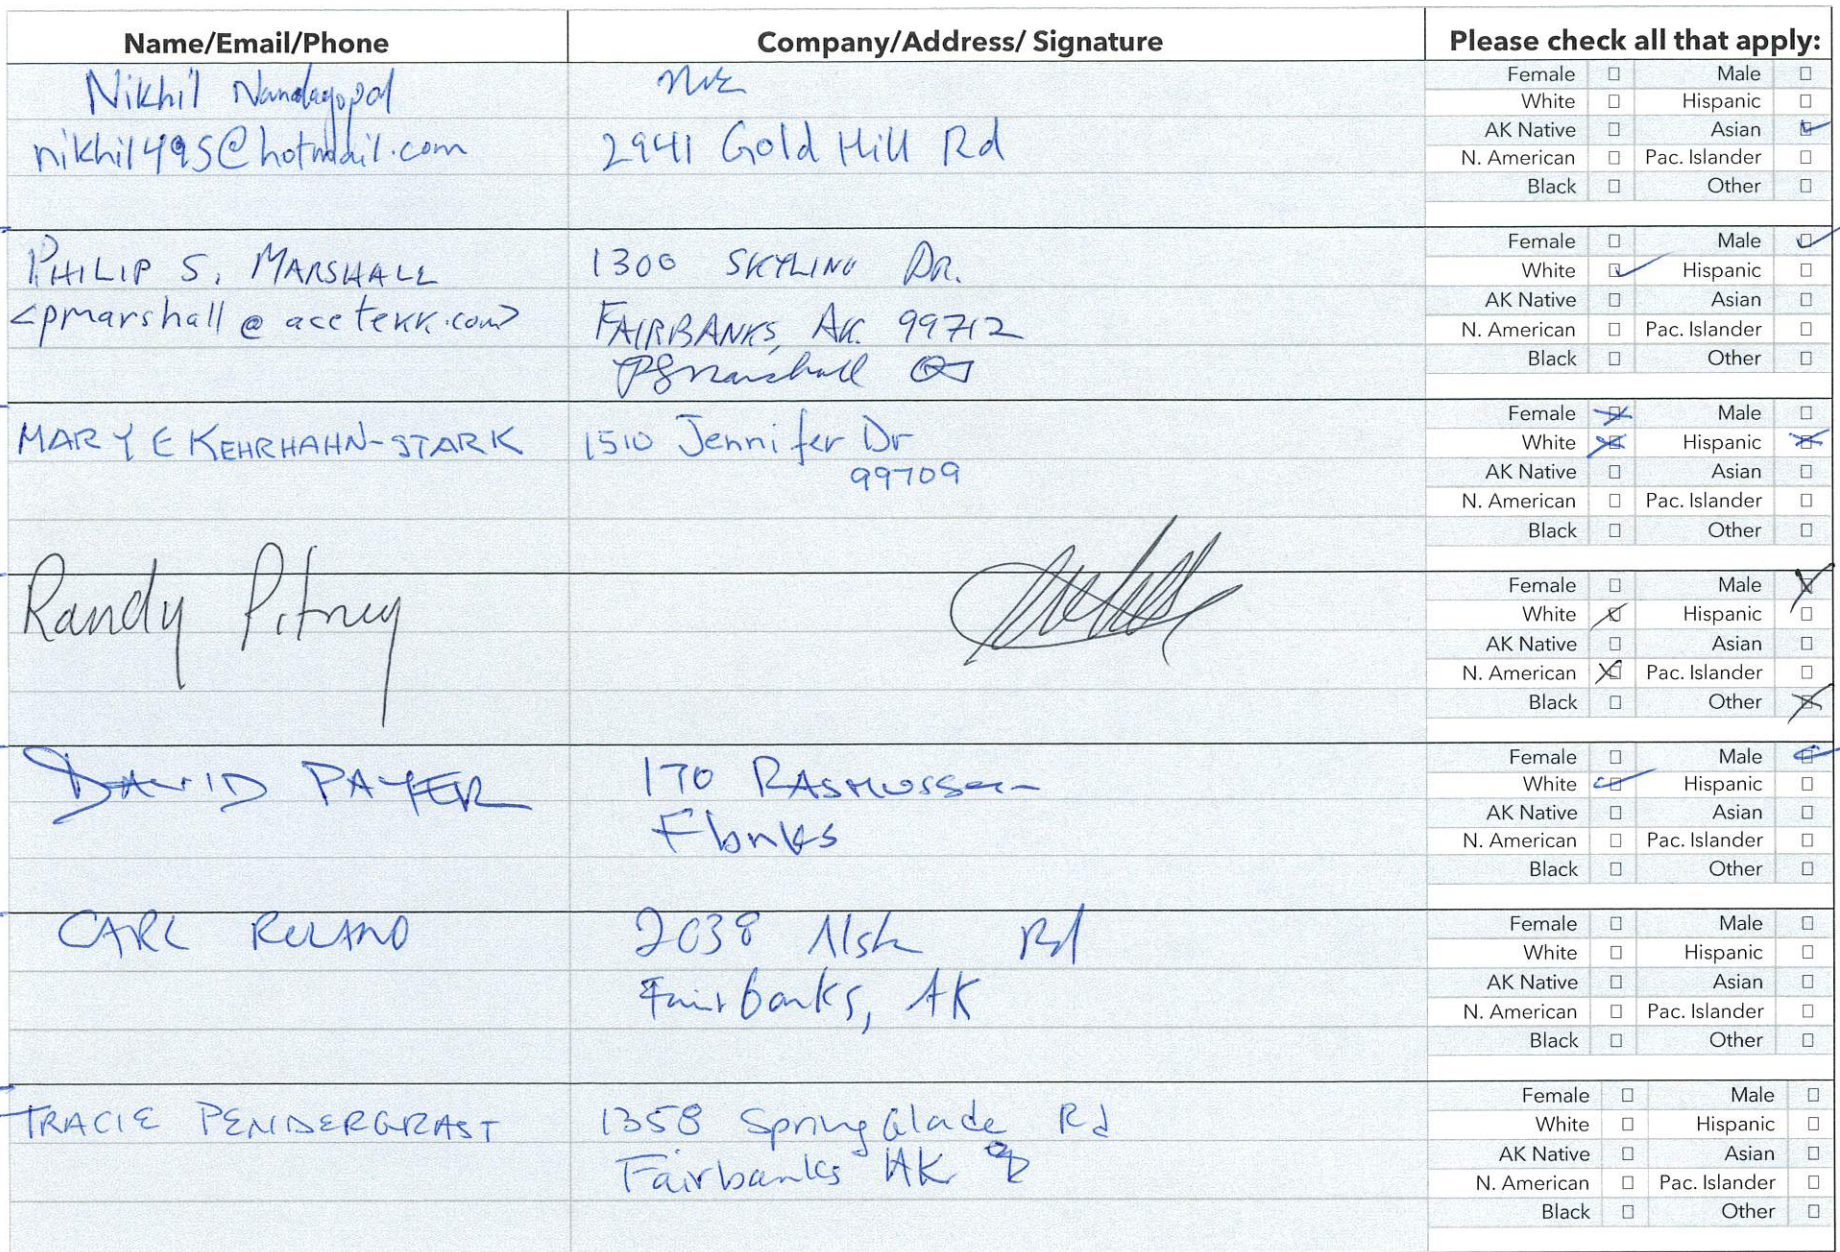 Name/Email/Phone Company/Address/ Signature Please check all that apply:
Nikhil Nandagopal
nikhil495@hotmail.com 2941 Gold Hill Rd
Female Male
White Hispanic
AK Native Asian
N. American Pac. Islander
Black Other
PHILIP S. MARSHALL 1300 SKYLINE DR.
<pmarshall@acetekk.com> FAIRBANKS, AK. 99712
PSMarshall
Female Male
White Hispanic
AK Native Asian
N. American Pac. Islander
Black Other
MARY E KEHRHAHN-STARK 1510 Jennifer Dr
99709
Female Male
White Hispanic
AK Native Asian
N. American Pac. Islander
Black Other
Randy Pitney
Female Male
White Hispanic
AK Native Asian
N. American Pac. Islander
Black Other
DAVID PAYER 170 RASMUSSEN
Fbnks
Female Male
White Hispanic
AK Native Asian
N. American Pac. Islander
Black Other
CARL ROLAND 2038 Rd
Fairbanks, AK
Female Male
White Hispanic
AK Native Asian
N. American Pac. Islander
Black Other
TRACIE PENDERGRAST 1358 Spring Glade Rd
Fairbanks AK
Female Male
White Hispanic
AK Native Asian
N. American Pac. Islander
Black Other